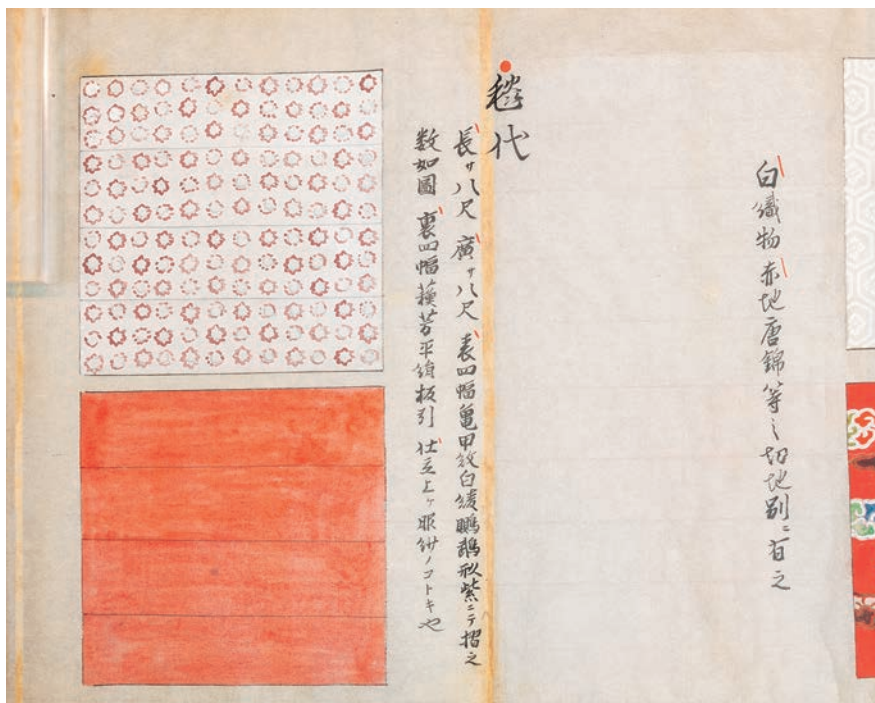 白織物赤地唐錦等之切地別ニ有之
毯代
長サ八尺廣サ八尺表四幅亀甲紋白綾鸚鵡形紫ニテ摺之
数如圖裏四幅蘓芳平絹板引仕立上ケ服紗ノコトキ也